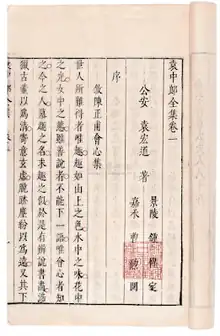 袁中郎全集卷一
公安　袁宏道　著
景陵　鍾惺　定
嘉禾　曹勳　閱
序
敘陳正甫會心集
世人所難得者唯趣趣如山上之色水中之味花中
之光女中之態雖善說者不能下一語唯會心者知
之今之人慕趣之名求趣之似於是有辨說書畫涉
獵古董以為清寄意玄虛脫跡塵紛以為遠又其下